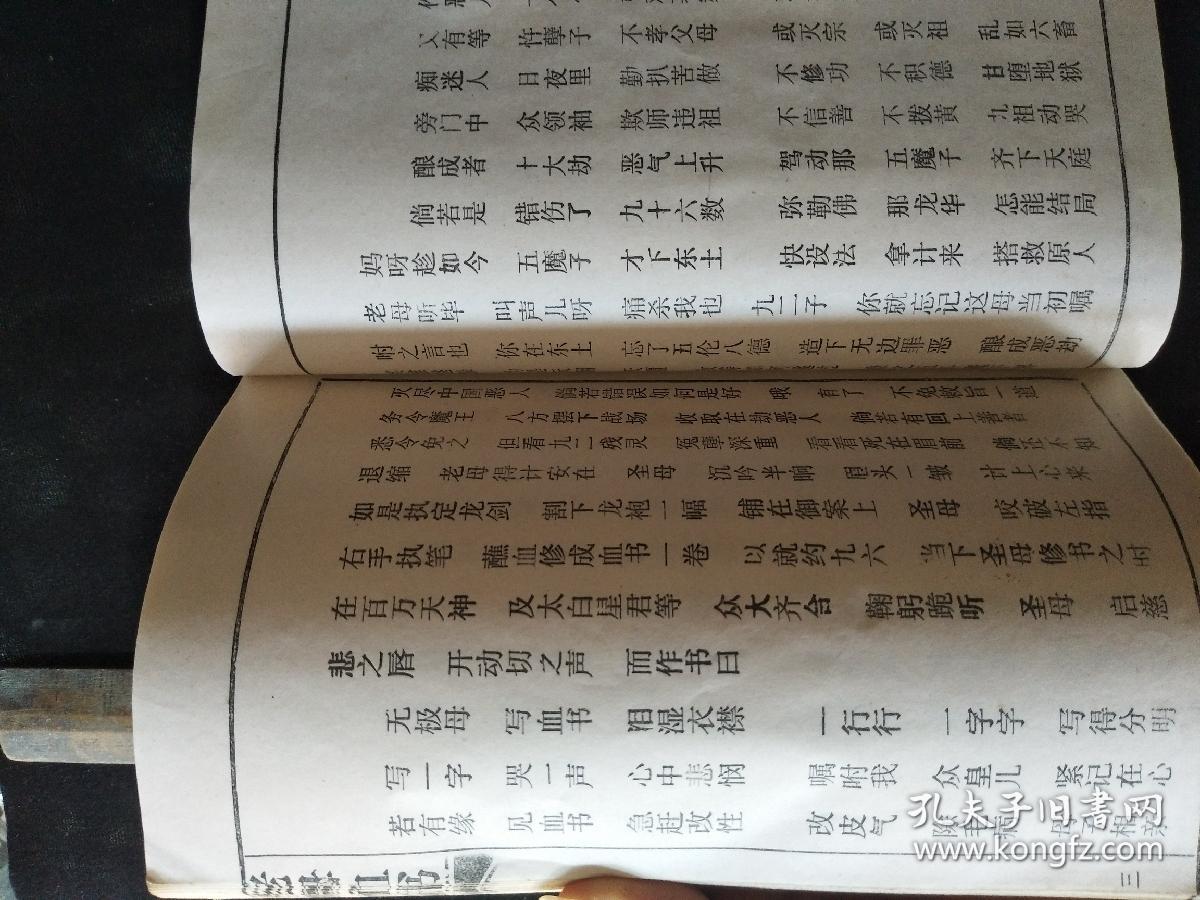 又有等 忤孽子 不孝父母 或灭宗 或灭祖 乱如六畜
痴迷人 日夜里 勤扒苦做 不修功 不积德 甘堕地狱
旁门中 众领袖 欺师违祖 不信善 不拨黄 九祖动哭
酿成者 十大劫 恶气上升 驾动那 五魔子 齐下天庭
倘若是 错伤了 九十六数 弥勒佛 那龙华 怎能结局
妈呀趁如今 五魔子 才下东土 快设法 拿计来 搭救原人
老母听毕 叫声儿呀 痛杀我也 九二子 你就忘记这母当初嘱
咐之言也 你在东土 忘了五伦八德 造下无边罪恶 酿成恶劫
灭尽中国恶人 倘若错误如何是好 哦 有了 不免敕旨一道
务令魔王 八方摆下战场 收取在劫恶人 倘若有回上善者
悉令免之 但看九二残灵 冤孽深重 看看死在眉前 倘还不知
退缩 老母得计安在 圣母 沉吟半响 眉头一皱 计上心来
如是执定龙剑 割下龙袍一幅 铺在御案上 圣母 咬破左指
右手执笔 蘸血修成血书一卷 以就约九六 当下圣母修书之时
在百万天神 及太白星君等 众大齐合 鞠躬跪听 圣母 启慈
悲之唇 开动切之声 而作书曰
无极母 写血书 泪湿衣襟 一行行 一字字 写得分明
写一字 哭一声 心中悲悯 嘱咐我 众皇儿 紧记在心
若有缘 见血书 急赶改性 改皮气 除书病 母子相亲
血书
三
孔夫子旧书网
www.kongfz.com